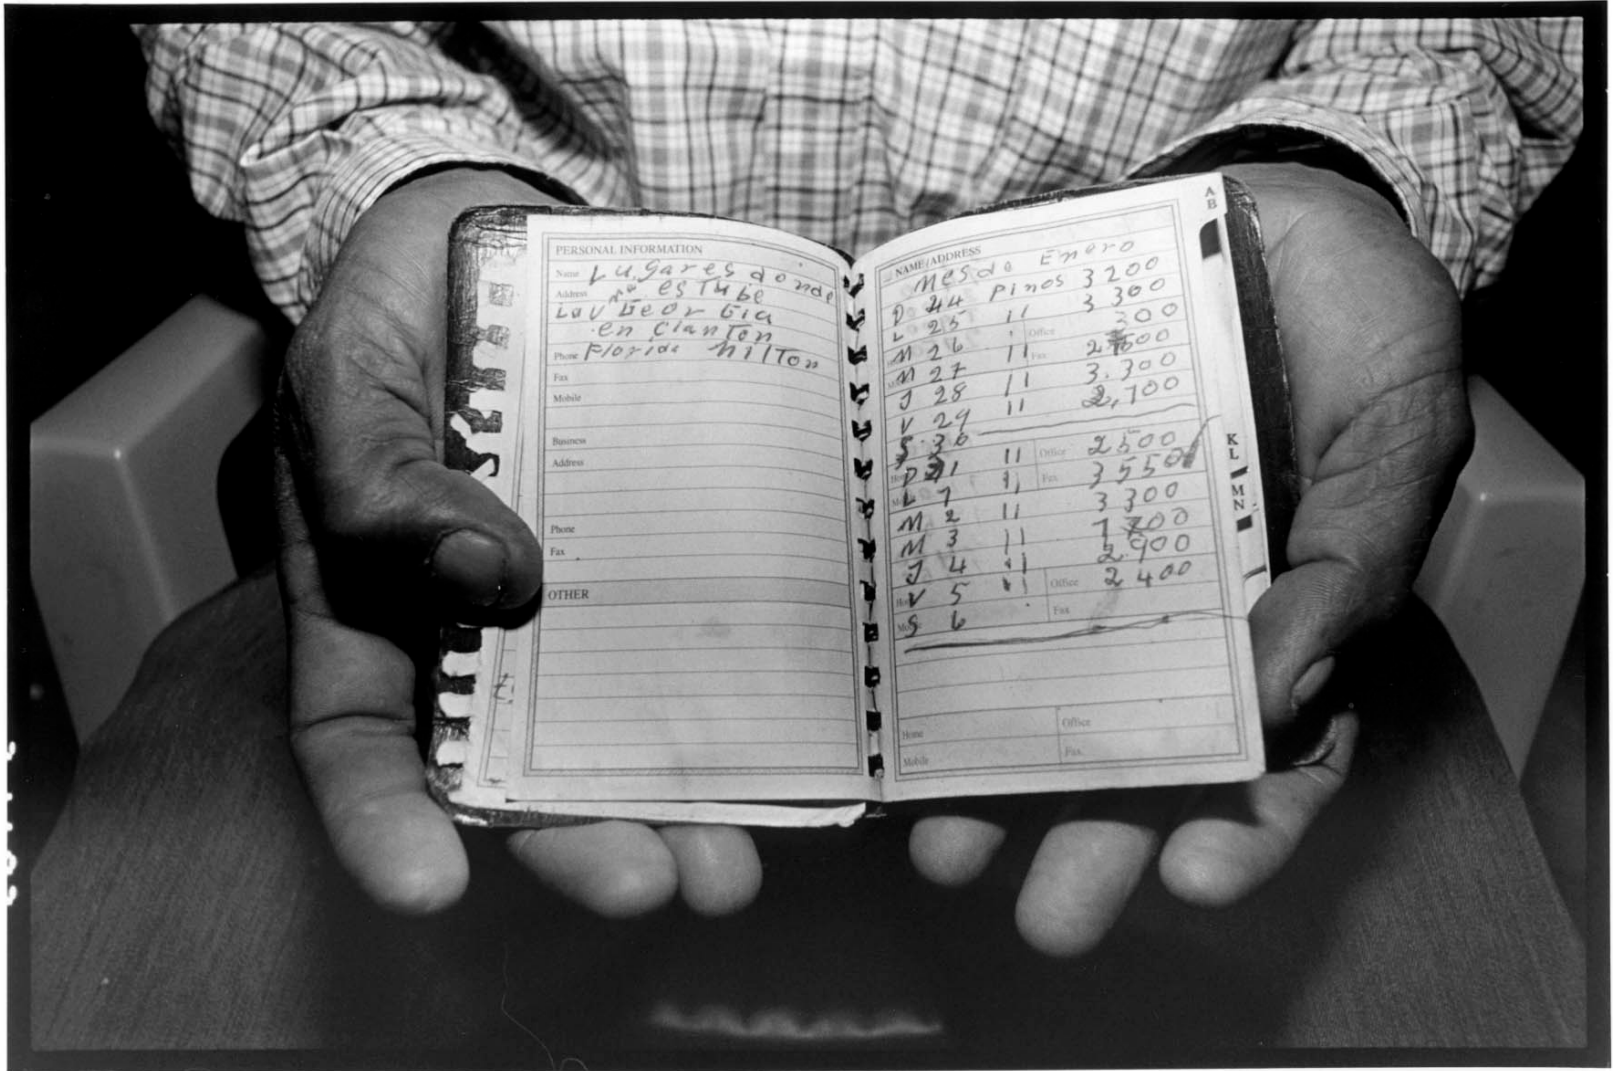 PERSONAL INFORMATION
Name Lugares donde
Address me estube
Lav Georgia
en Clanton
Phone Florida Milton
Fax
Mobile
Business
Address
Phone
Fax
OTHER
NAME/ADDRESS
Mes de Enero
D 24 Pinos 3200
L 25 11 3300
M 26 11 Office 200
M 27 11 Fax 2500
J 28 11 3.300
V 29 11 2,700
S 30
D 31 11 Office 2500
L 1 11 Fax 3550
M 2 11 3300
M 3 11 1700
J 4 11 2.900
V 5 11 Office 2400
S 6 Fax
Office
Home
Fax
Mobile
A
B
K
L
M
N